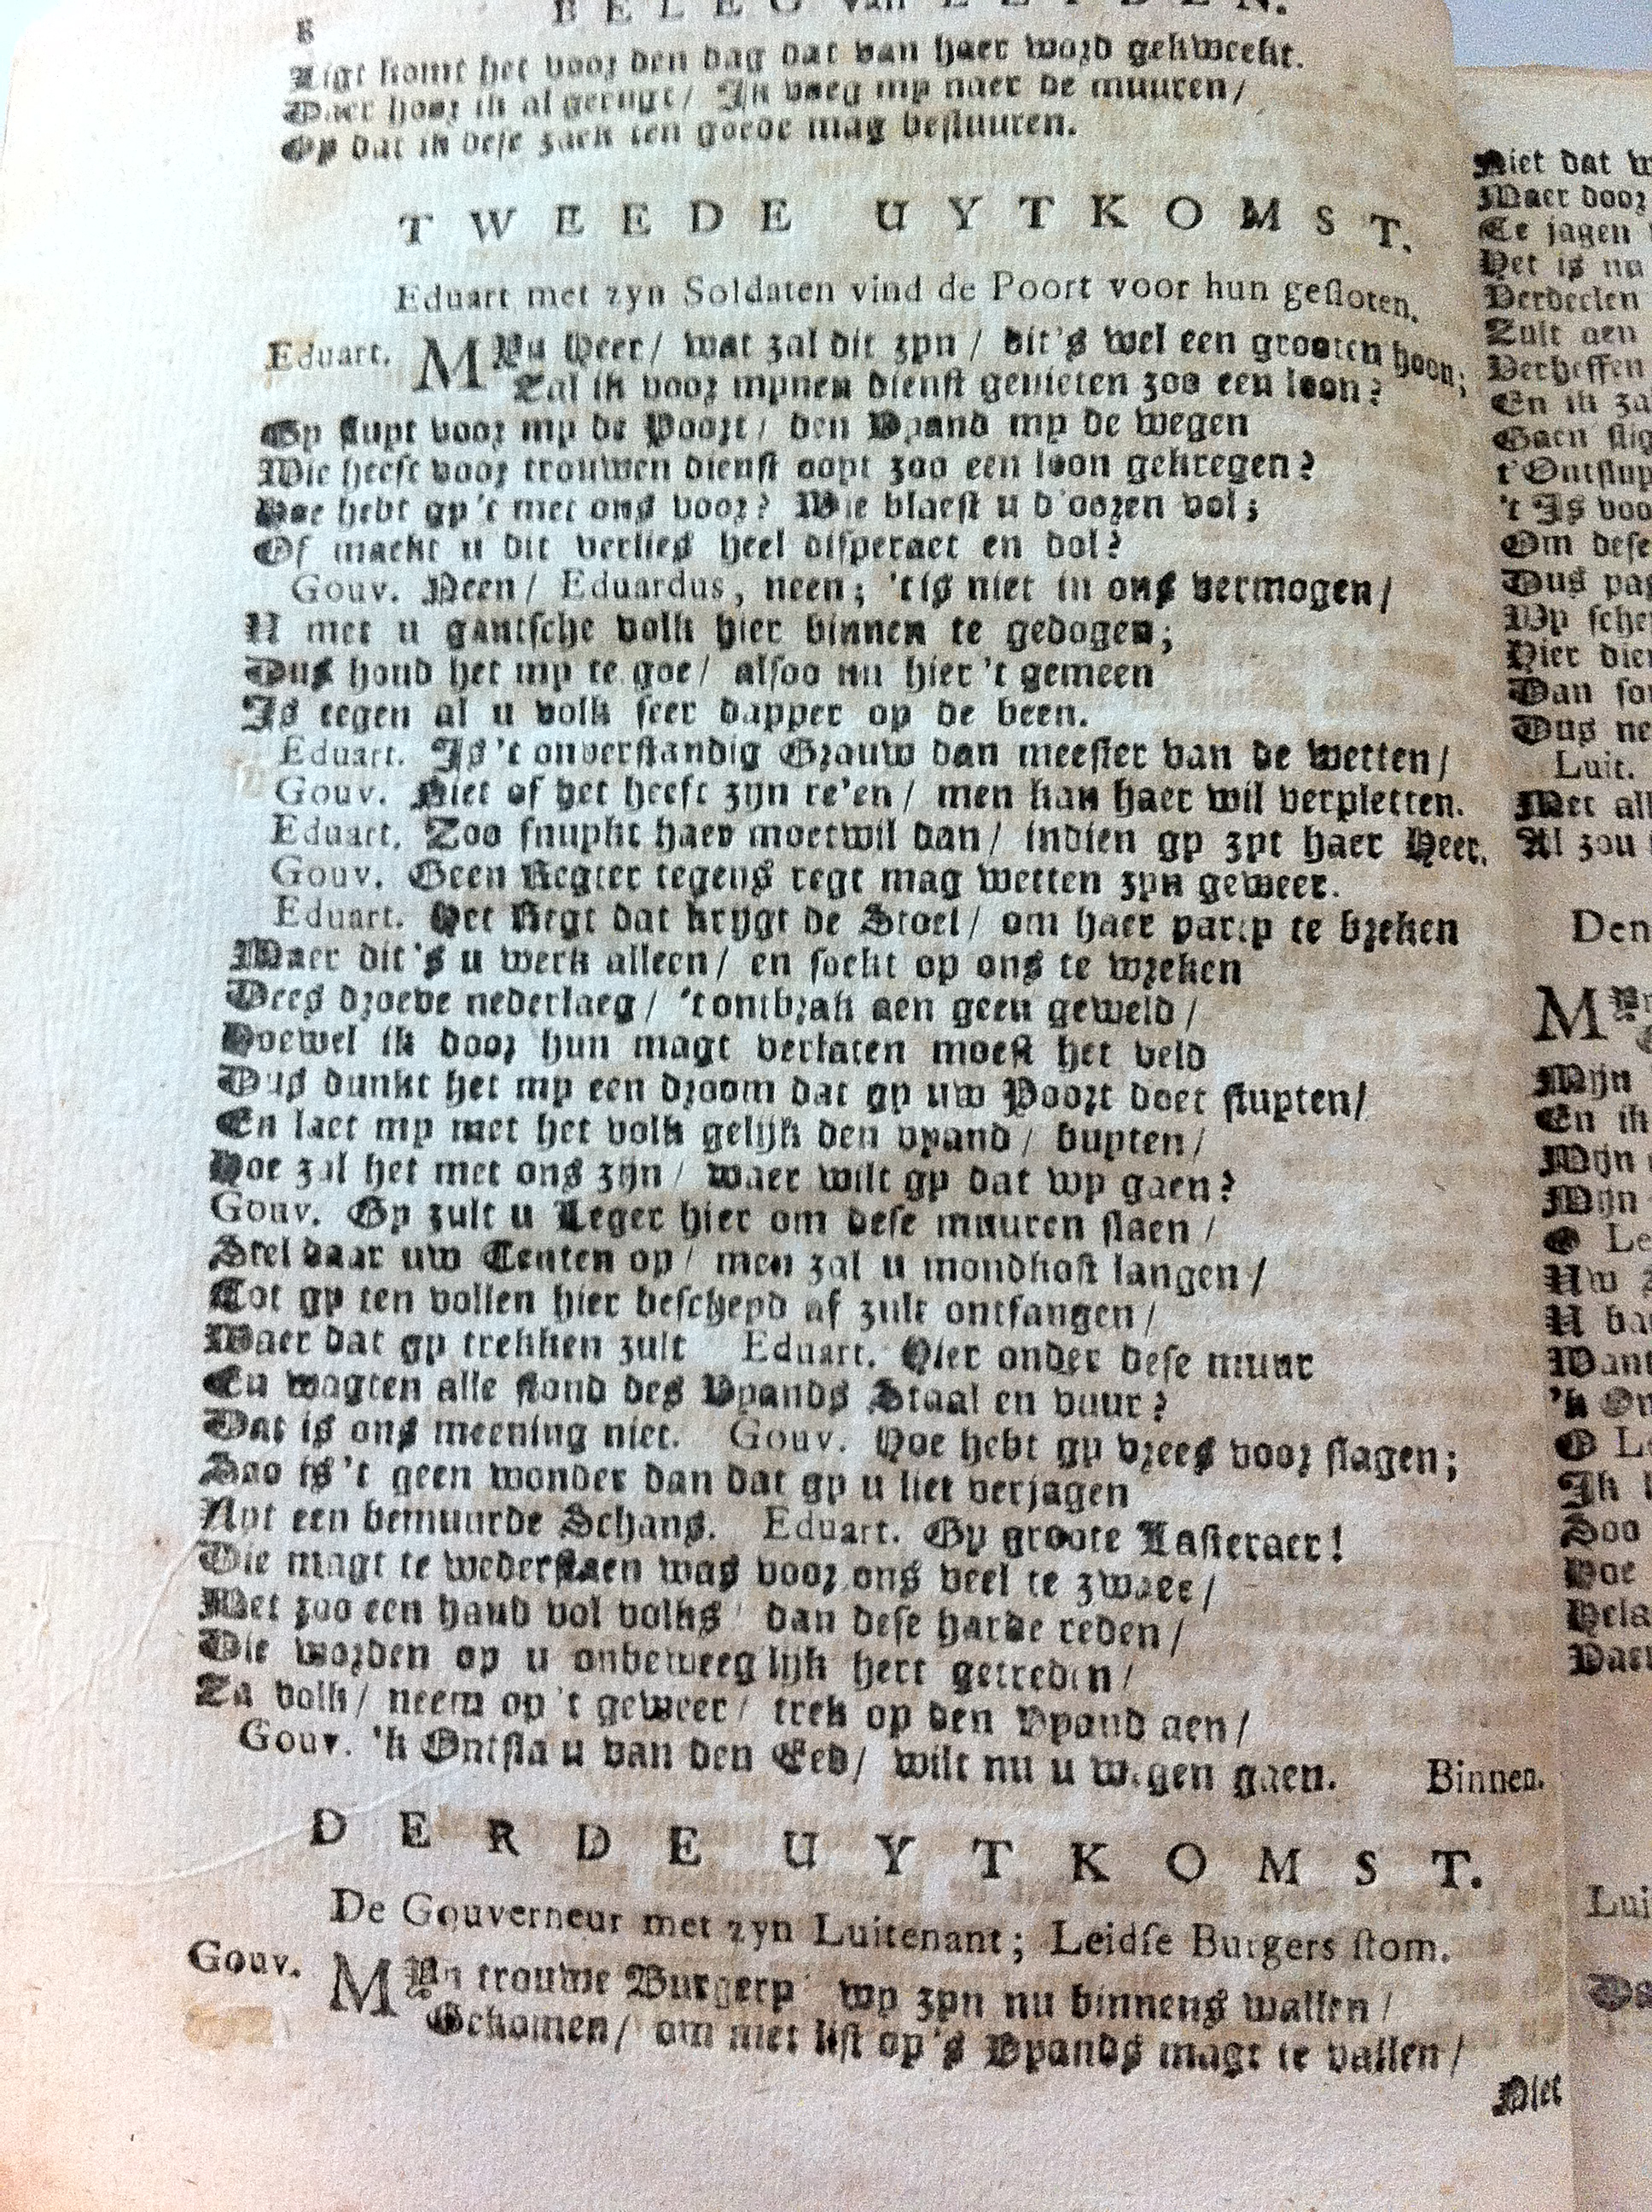 8 BELEG van LEYDEN.
Ligt komt het voor den dag dat van haer word gekweekt.
Daer hoor ik al gerugt / Ik voeg my naer de muuren /
Op dat ik dese zaek ten goede mag bestuuren.
TWEEDE UYTKOMST.
Eduart met zyn Soldaten vind de Poort voor hun gesloten.
Eduart. MYn Heer / wat zal dit zyn / dit's wel een grooten hoon;
Zal ik voor mynen dienst genieten zoo een loon?
Gy sluyt voor my de Poort / den Vyand my de wegen
Wie heeft voor trouwen dienst ooyt zoo een loon gekregen?
Hoe hebt gy 't met ons voor? Wie blaest u d'ooren vol;
Of maekt u dit verlies heel disperaet en dol?
Gouv. Neen / Eduardus, neen; 'tis niet in ons vermogen /
U met u gantsche volk hier binnen te gedogen;
Dus houd het my te goe / alsoo nu hier 't gemeen
Is tegen al u volk seer dapper op de been.
Eduart. Is 't onverstandig Grauw dan meester van de wetten /
Gouv. Niet of het heeft zyn re'en / men kan haer wil verpletten.
Eduart. Zoo snuykt haer moetwil dan / indien gy zyt haer Heer.
Gouv. Geen Regter tegens regt mag wetten zyn geweer.
Eduart. Het Regt dat krygt de Stoel / om haer party te breken
Maer dit's u werk alleen / en soekt op ons te wreken
Dees droeve nederlaeg / 't ontbrak aen geen geweld /
Hoewel ik door hun magt verlaten moest het veld
Dus dunkt het my een droom dat gy uw Poort doet sluyten /
En laet my met het volk gelijk den vyand / buyten /
Hoe zal het met ons zijn / waer wilt gy dat wy gaen?
Gouv. Gy zult u Leger hier om dese muuren slaen /
Stel daar uw Tenten op / men zal u mondkost langen /
Tot gy ten vollen hier bescheyd af zult ontfangen /
Waer dat gy trekken zult Eduart. Hier onder dese muur
En wagten alle stond des Vyands Staal en vuur?
Dat is ons meening niet. Gouv. Hoe hebt gy vrees voor slagen;
Soo is 't geen wonder dan dat gy u liet verjagen
Uyt een bemuurde Schans. Eduart. Gy groote Lasteraer!
Die magt te wederstaen was voor ons veel te zwaer /
Met zoo een hand vol volks / dan dese harde reden /
Die worden op u onbeweeglijk hert getreden /
Za volk / neem op 't geweer / trek op den Vyand aen /
Gouv. 'k Ontsla u van den Eed / wilt nu u wegen gaen. Binnen.
DERDE UYTKOMST.
De Gouverneur met zyn Luitenant; Leidse Burgers stom.
Gouv. MYn trouwe Burgery wy zyn nu binnens wallen /
Gekomen / om met list op 's Vyands magt te vallen /
Niet
Niet dat
Maer door
Te jagen
Het is nu
Verdeelen
Zult aen
Verheffen
En ik
Gaen
t'Ontsluy
't Is voo
Om dese
Dus
Wy sche
Hier die
Dan
Dus ne
Luit.
Met all
Al zou
Den
M
Mijn
En ik
Mijn
Mijn
O Le
Uw
U
Want
'k
O
Ik
Soo
Hoe
Hela
Daer
Lui